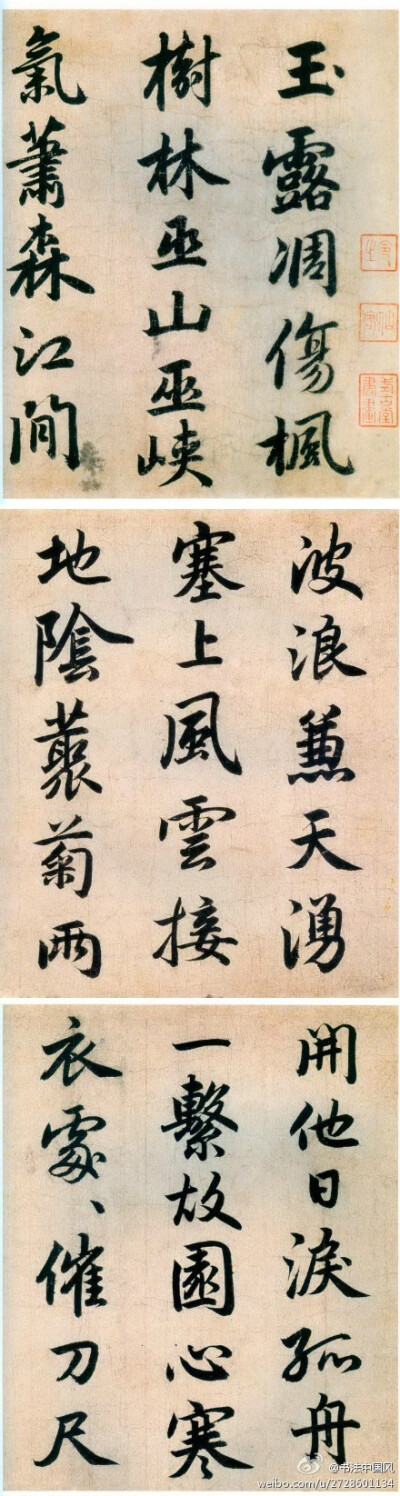 玉露凋傷楓
樹林巫山巫峽
氣蕭森江間
波浪兼天湧
塞上風雲接
地陰叢菊兩
開他日淚孤舟
一繫故園心寒
衣處、催刀尺
@书法中国风
weibo.com/u/2728601134